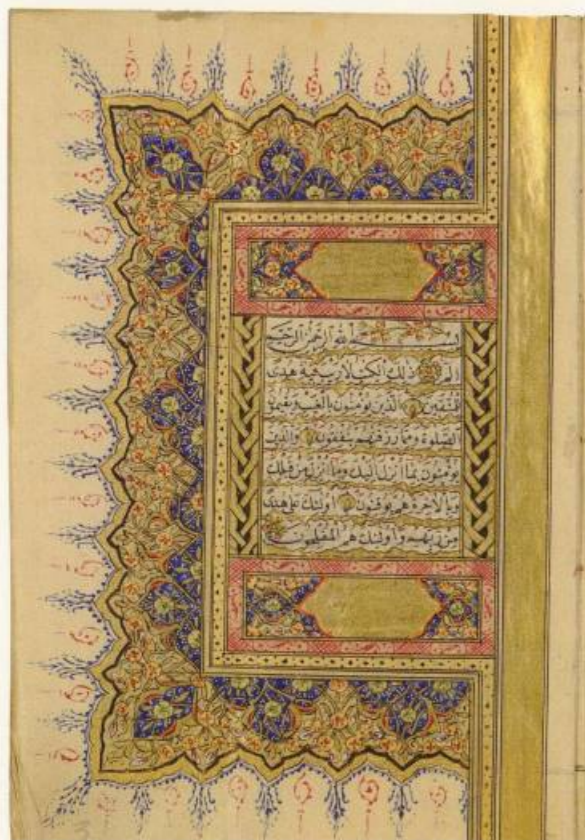 بِسْمِ اللهِ الرَّحْمٰنِ الرَّحِيمِ
الٓمٓ ذٰلِكَ الْكِتٰبُ لَا رَيْبَ فِيهِ هُدًى
لِلْمُتَّقِينَ الَّذِينَ يُؤْمِنُونَ بِالْغَيْبِ وَيُقِيمُونَ
الصَّلٰوةَ وَمِمَّا رَزَقْنٰهُمْ يُنْفِقُونَ وَالَّذِينَ
يُؤْمِنُونَ بِمَا اُنْزِلَ اِلَيْكَ وَمَا اُنْزِلَ مِنْ قَبْلِكَ
وَبِالْاٰخِرَةِ هُمْ يُوقِنُونَ اُولٰئِكَ عَلٰى هُدًى
مِنْ رَبِّهِمْ وَاُولٰئِكَ هُمُ الْمُفْلِحُونَ